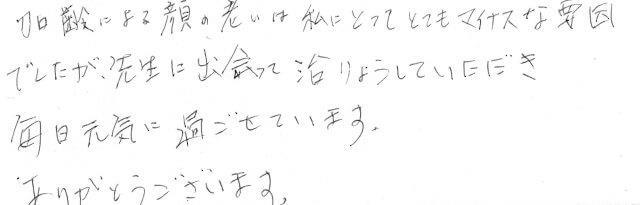 加齢による顔の老いは私にとってとてもマイナスな要因
でしたが、先生に出会って治りょうしていただき
毎日元気に過ごせています。
ありがとうございます。